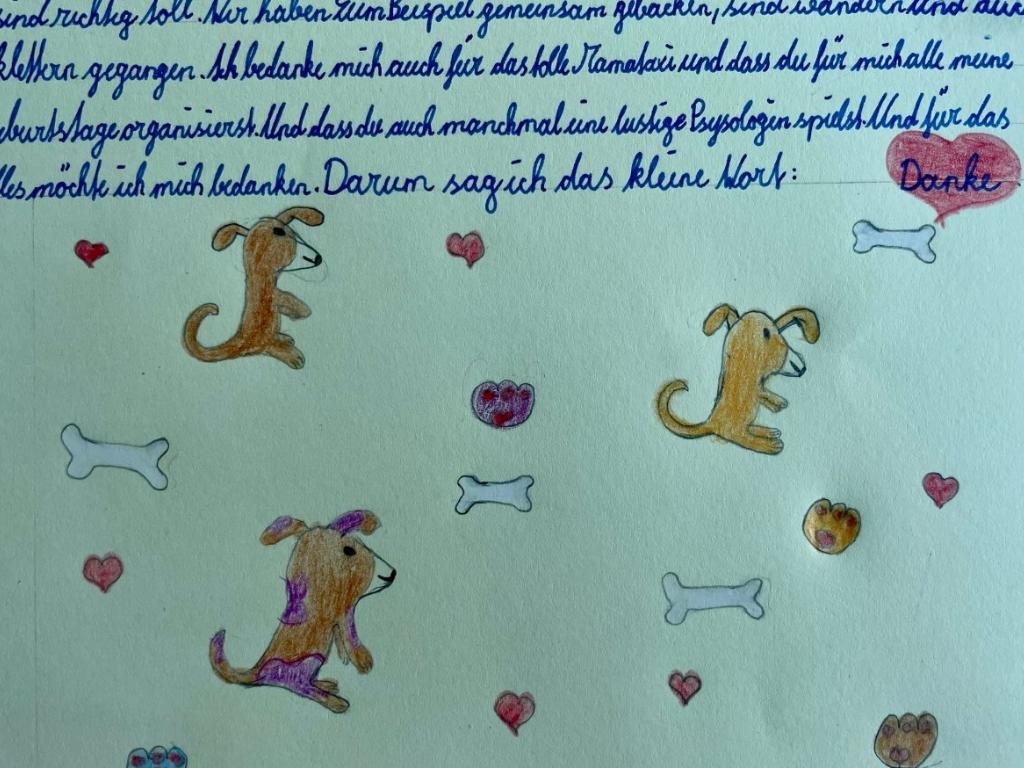 sind richtig toll. Wir haben zum Beispiel gemeinsam gebacken, sind wandern und auch
klettern gegangen. Ich bedanke mich auch für das tolle Mamataxi und dass du für mich alle meine
eburtstage organisierst. Und dass du auch manchmal eine lustige Psysologin spielst. Und für das
lles möchte ich mich bedanken. Darum sag ich das kleine Wort: Danke